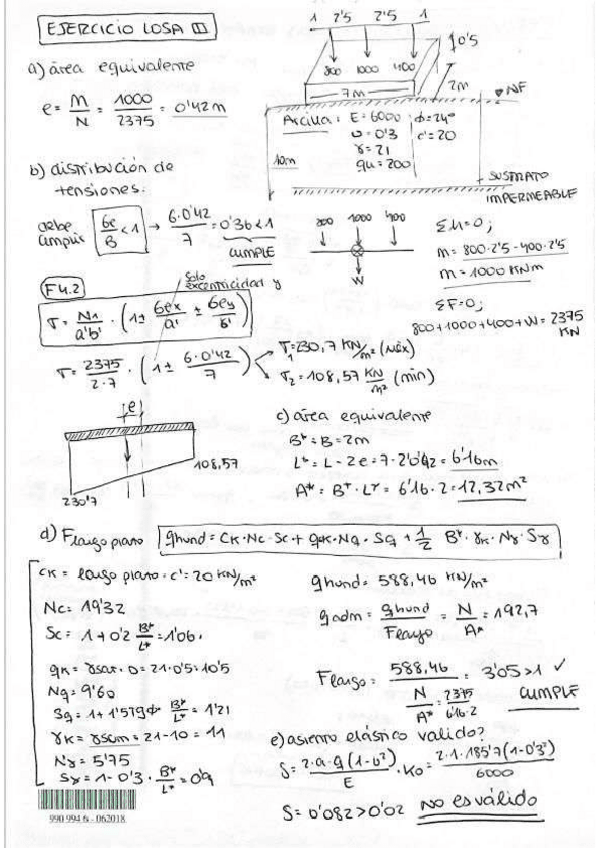 EJERCICIO LOSA III
1 2'5 2'5 1
800 1000 400
0'5
7m
2m
NF
Arcilla: E=6000 ϕ=24º
υ=0'3 c'=20
γ=21
qu=200
10m
SUSTRATO
IMPERMEABLE
a) área equivalente
e = M/N = 1000/2375 = 0'42m
b) distribución de
tensiones.
debe
cumplir 6e/B < 1 → 6·0'42/7 = 0'36 < 1
CUMPLE
800 1000 400
W
ΣM=0;
M = 800·2'5 - 400·2'5
M = 1000 KNm
ΣF=0;
800+1000+400+W = 2375
KN
F4.2
Solo
excentricidad y
σ = N1/a'b' · (1 ± 6ex/a' ± 6ey/b')
σ = 2375/2·7 · (1 ± 6·0'42/7)
σ1 = 230,7 KN/m² (máx)
σ2 = 108,57 KN/m² (min)
e
108,57
230'7
c) área equivalente
B* = B = 2m
L* = L - 2e = 7 - 2·0'42 = 6'16m
A* = B*·L* = 6'16·2 = 12,32m²
d) Flargo plazo qhund = CK·Nc·Sc + qok·Nq·Sq + 1/2 B*·γk·Nγ·Sγ
CK = largo plazo: c' = 20 KN/m²
Nc = 19'32
Sc = 1 + 0'2 B*/L* = 1'06.
qk = γsat·D = 21·0'5 = 10'5
Nq = 9'60
Sq = 1 + 1'5tgϕ B*/L* = 1'21
γk = γsum = 21-10 = 11
Nγ = 5'75
Sγ = 1 - 0'3 · B*/L* = 0'9
qhund = 588,46 KN/m²
qadm = qhund/Flargo = N/A* = 192,7
Flargo = 588,46 / N/A* = 2375/6'16·2 = 3'05 > 1 ✓
CUMPLE
e) asiento elástico valido?
S = 2·a·q(1-υ²)/E · K0 = 2·1·185'7(1-0'3²)/6000
S = 0'082 > 0'02 NO es válido
990 994 fs - 062018